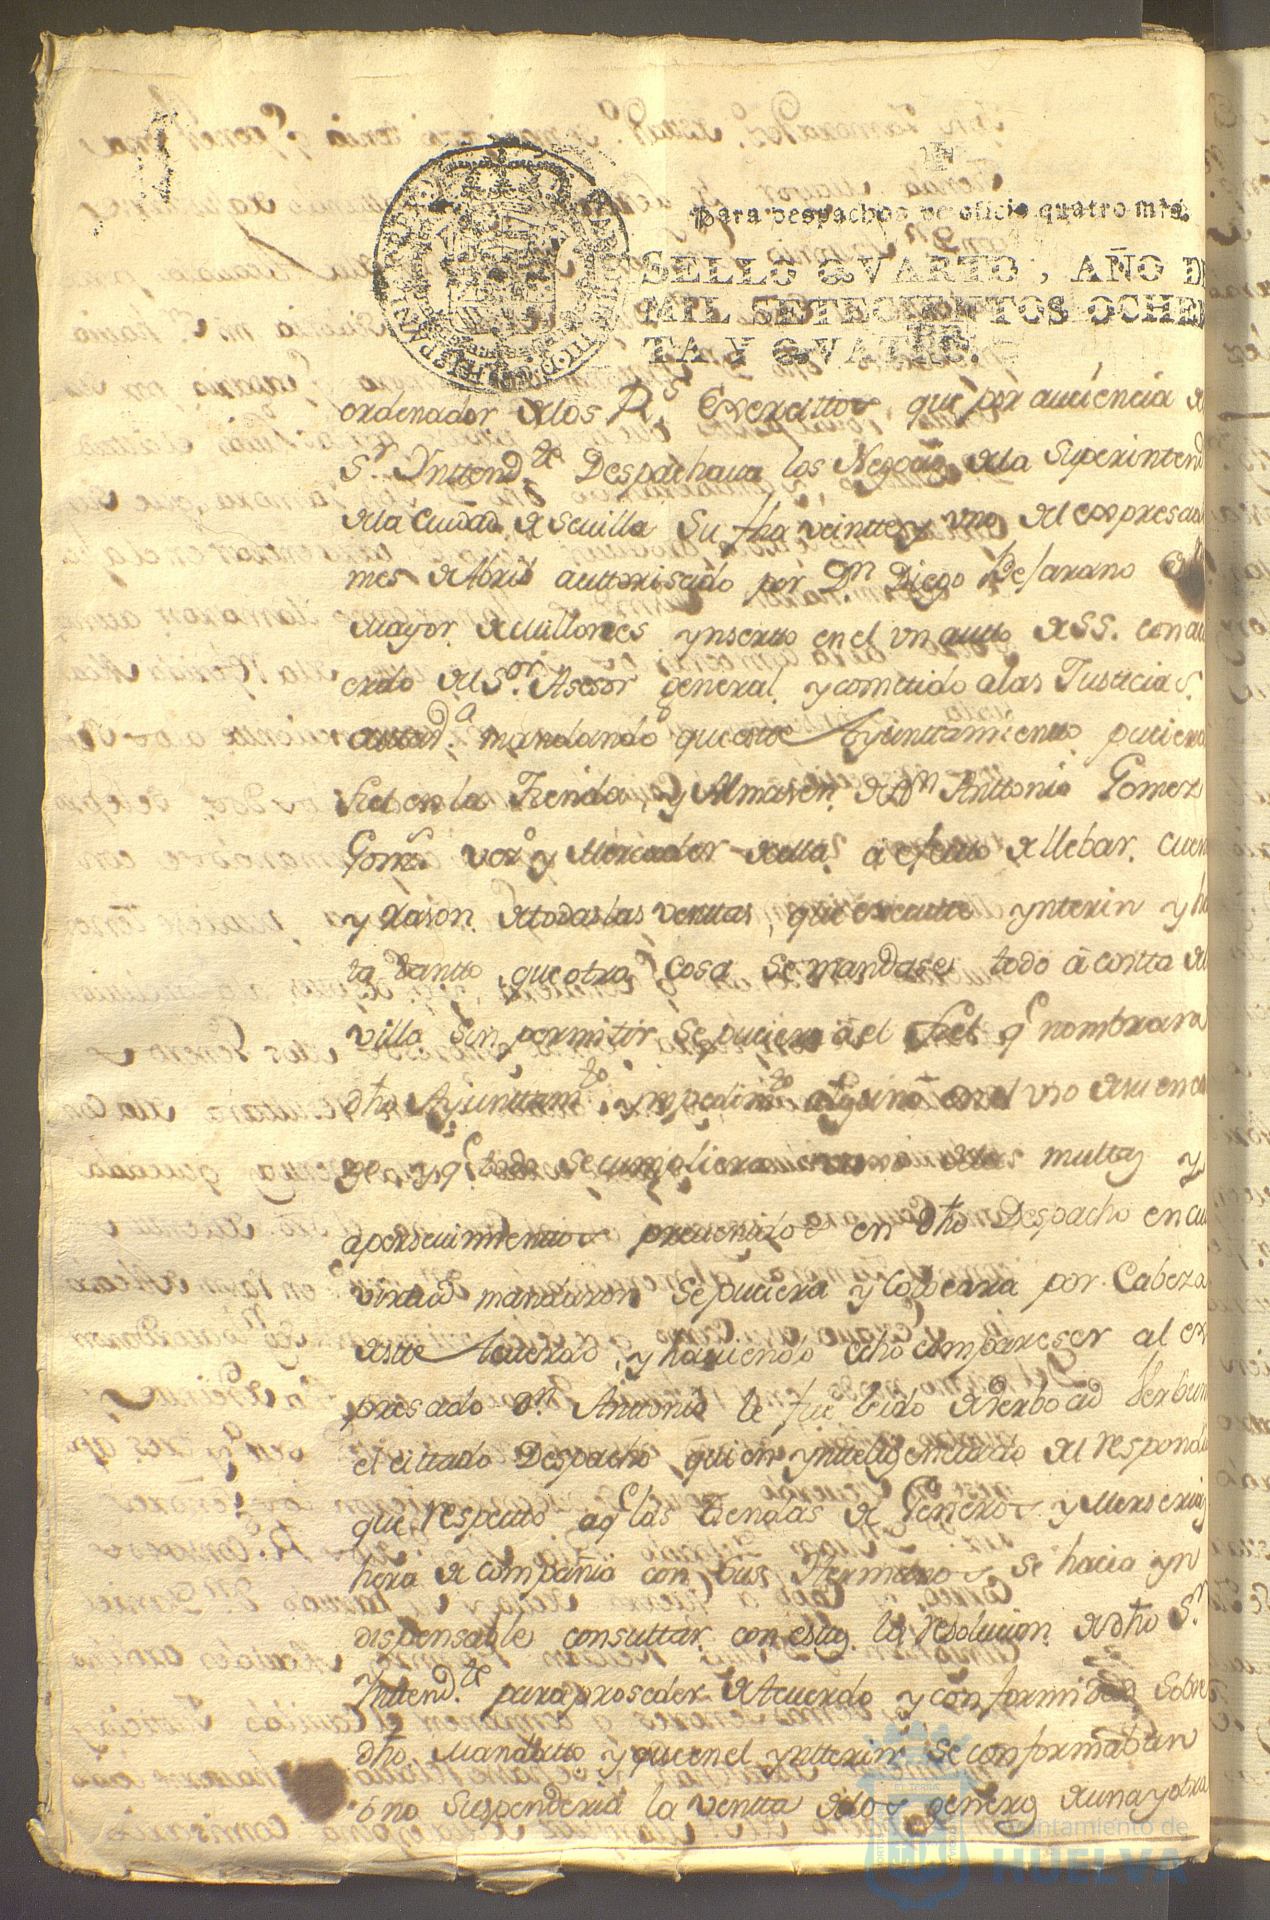 Para despachos de oficio quatro mrs.
SELLO QVARTO, AÑO D
MIL SETECIENTOS OCHEN
TA Y QVATRO.
ordenador de los Rs. Exercittos, que por ausiencia de
Sr. Ynttendte. Despachava los Negocios de la Superintend
de la Ciudad de Sevilla su fha veintte y uno del expresado
mes de Abril auttorisado por Dn. Diego Bejarano
mayor de Millones ynsertto en el un autto de SS. con acu
erdo del Sor. Asesor general y cometido a las Justicias
mandando que este Ayunttamientto pusiera
fiel en la Tienda, y Almasen de Dn Anttonio Gomez
Gomes vezo. y Mercader de ella a efectto de llebar cuen
y rason de todas las venttas, que execute ynterin y ha
ta tantto que otra cosa se mandase todo a costa del
villa sin permitir se pusiera a el fiel q nombrara
dho Ayunttamto. ympedimto. alguno en el uso de su enca
go, y q todo se cumpliera multas y
apersevimienttos prevenidos en dho Despacho en cu
virtud mandaron se pusiera y colocara por Cabeza
de este Acuerdo, y haviendo echo compareser al ex
presado Dn. Anttonio le fue leido de verbo ad verbum
el cittado Despacho quien ynteligenciado del respondi
que respectto a q las tiendas de Generos y Merseria
hera de compañia con sus Hermanos se hacia yn
dispensable consulttar con estos la resolucion de dho Sr.
Ynttendte. para proseder de Acuerdo y conformidad sobre
dho Mandatto y que en el yntterin se conformaban
o no suspenderia la ventta de los generos de una y otra
Ayuntamiento de
HUELVA